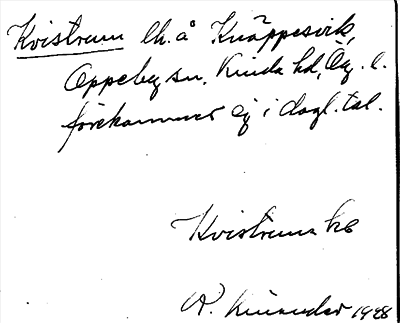 Kvistrum lh. å Knäppesvik,
Oppeby sn. Kinda hd, Ög. l.
förekommer ej i dagl. tal.
Kvistrum
R. 1928